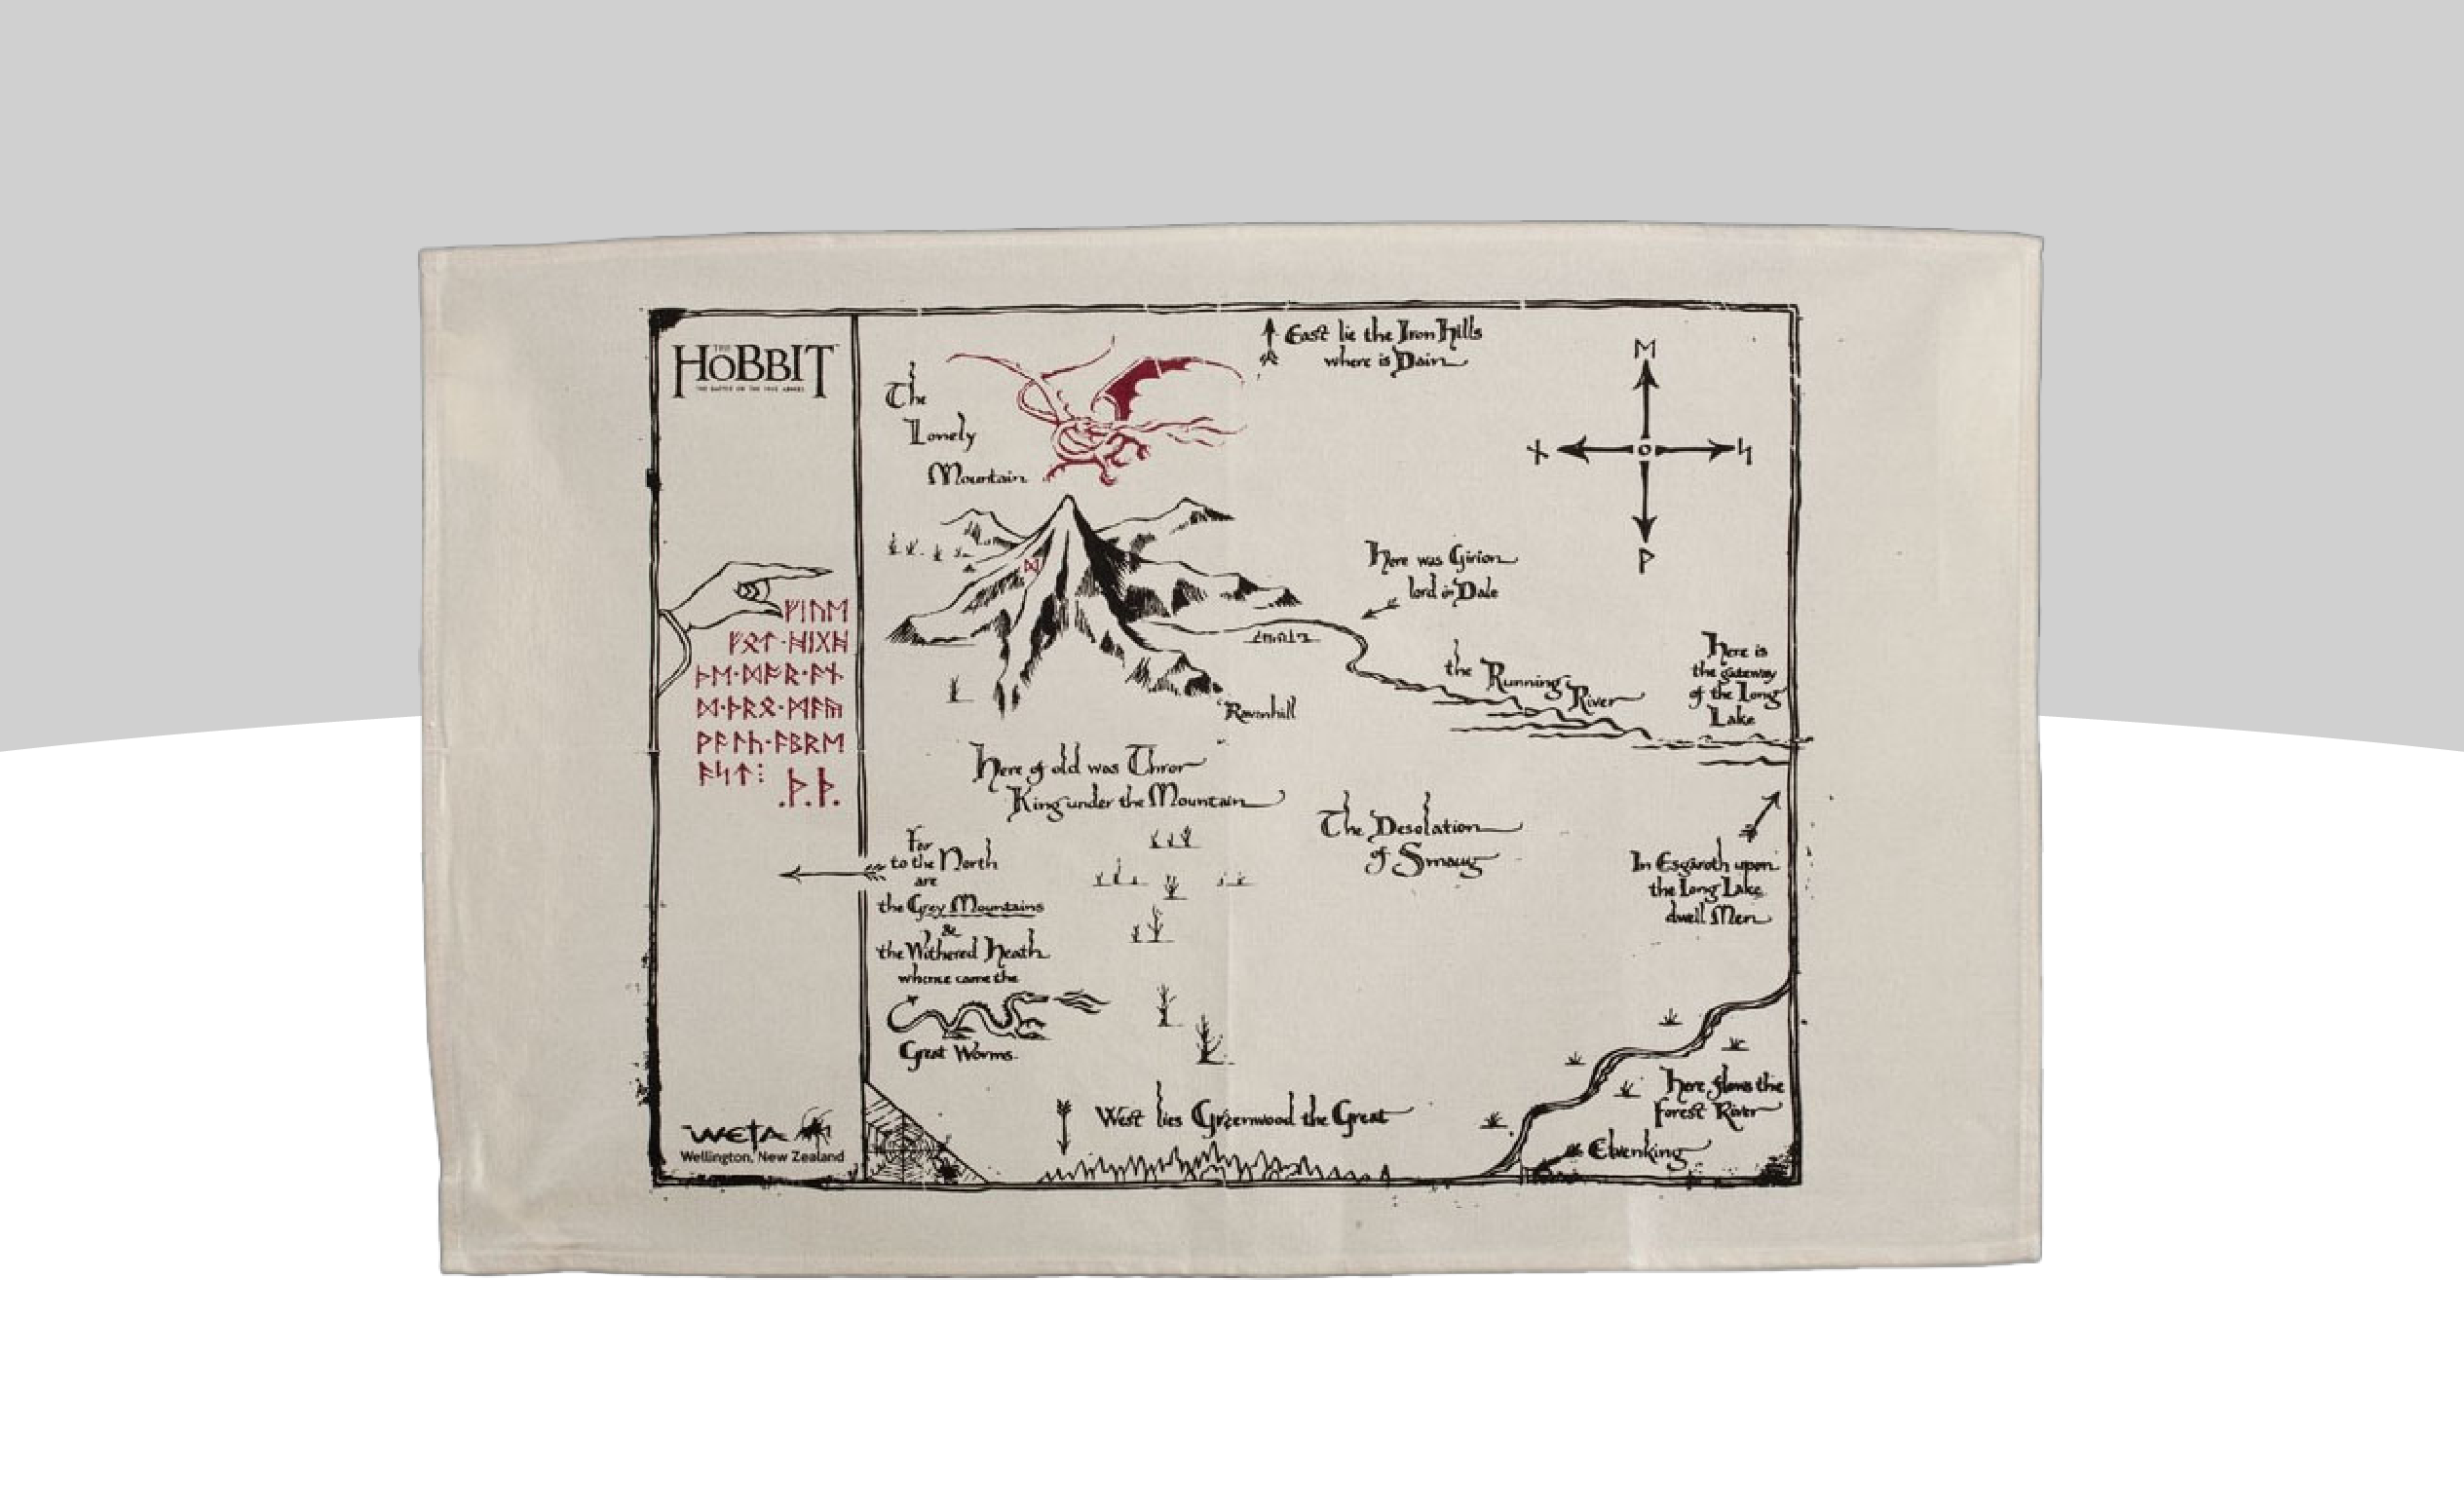 THE
HOBBIT
THE BATTLE OF THE FIVE ARMIES
ᚠᛁᚢᛖ
ᚠᛟᛏ·ᚻᛁᚷᚻ
ᚦᛖ·ᛞᚩᚱ·ᚪᚾ
ᛞ·ᚦᚱᛟ·ᛗᚪᚣ
ᚹᚪᛚᚳ·ᚪᛒᚱᛖ
ᚪᛋᛏ:
.ᚦ.ᚦ.
WETA
Wellington, New Zealand
The
Lonely
Mountain
East lie the Iron Hills
where is Dain
ᛗ
ᚾ
ᛋ
ᚹ
ᛞ
Here was Girion
lord in Dale
the Running
River
Here is
the gateway
of the Long
Lake
Ravenhill
Here of old was Thror
King under the Mountain
The Desolation
of Smaug
Far
to the North
are
the Grey Mountains
&
the Withered Heath
whence came the
Great Worms.
In Esgaroth upon
the Long Lake
dwell Men
West lies Greenwood the Great
Here flows the
Forest River
Elvenking